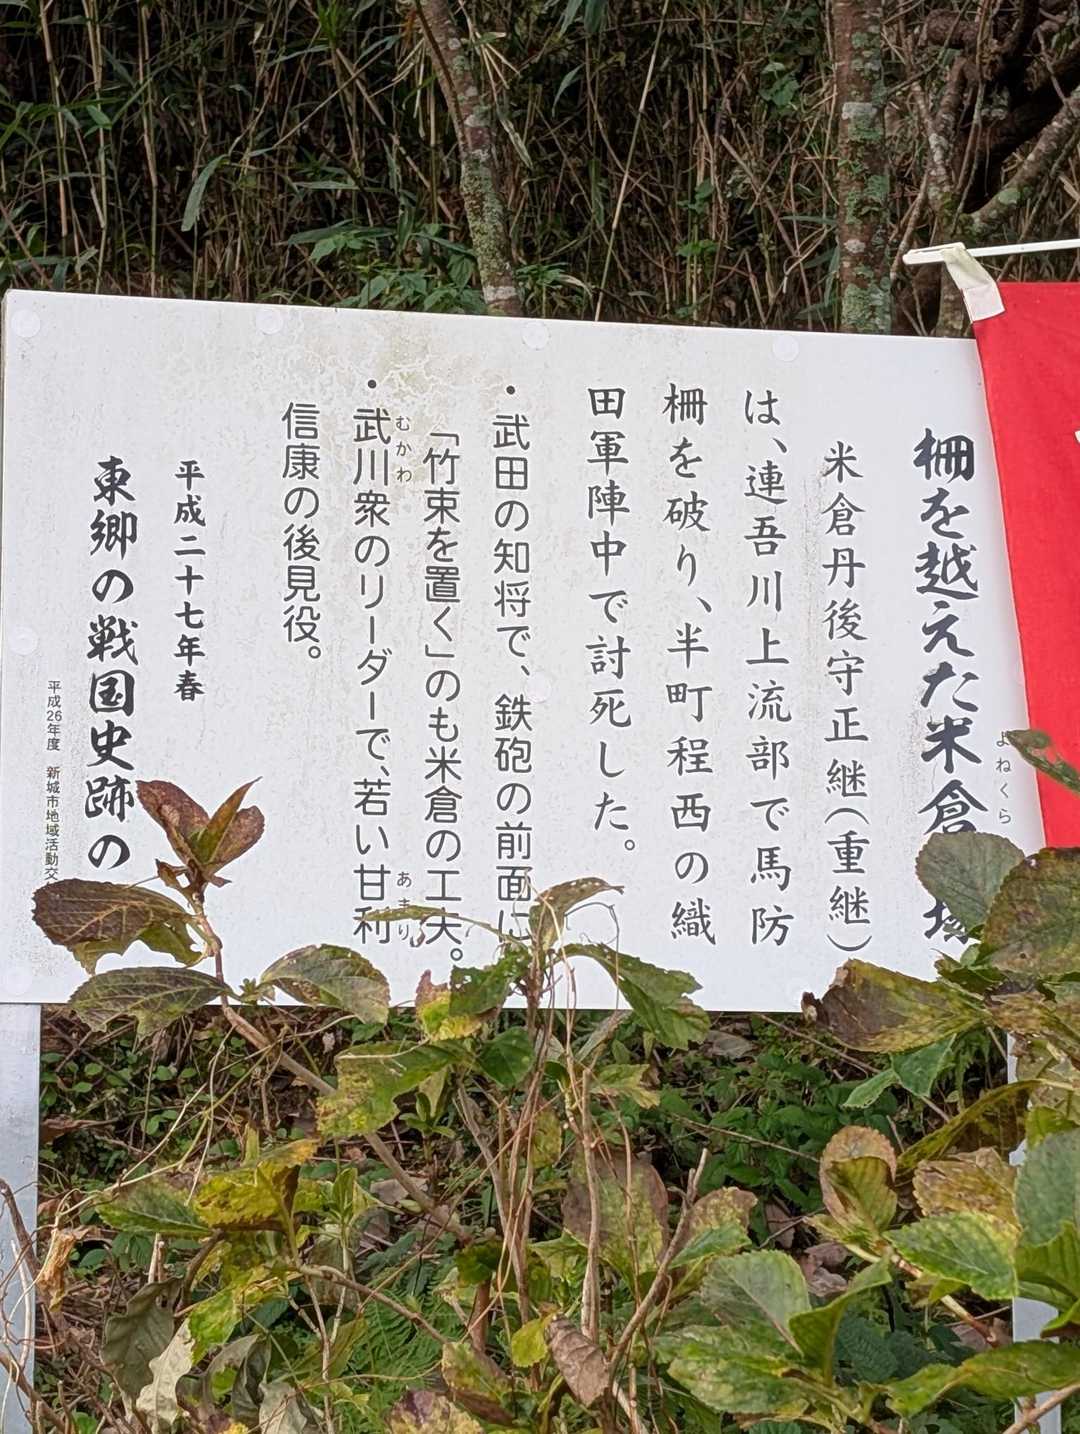 柵を越えた米倉
よねくら
米倉丹後守正継(重継)
は、連吾川上流部で馬防
柵を破り、半町程西の織
田軍陣中で討死した。
・武田の知将で、鉄砲の前面に
「竹束を置く」のも米倉の工夫。
・武川衆のリーダーで、若い甘利
むかわ
あまり
信康の後見役。
平成二十七年春
東郷の戦国史跡の
平成26年度 新城市地域活動交